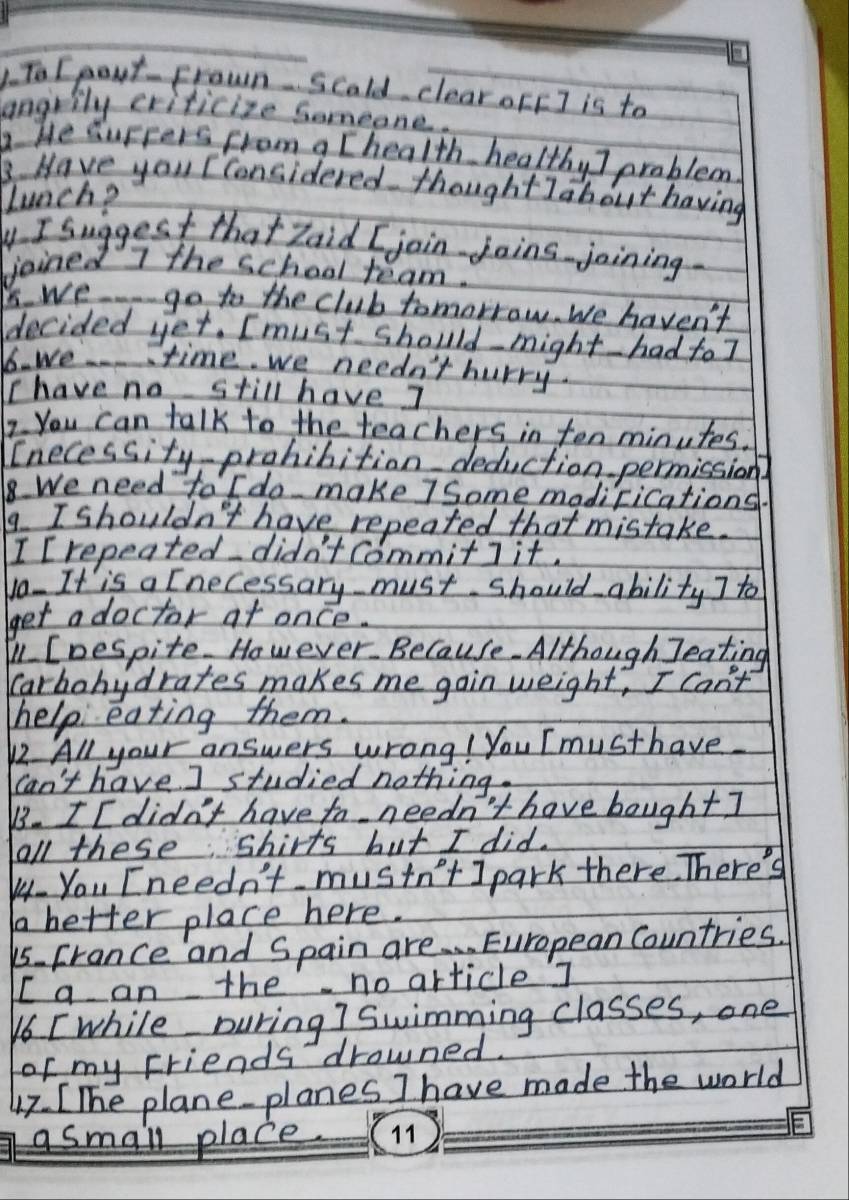 1. To [pout - frown - scold - clear off] is to
angrily criticize someone.
2. He suffers from a [health - healthy] problem.
3. Have you [considered - thought] about having
lunch?
4. I suggest that Zaid [join - joins - joining -
joined] the school team.
5. We .... go to the club tomorrow. We haven't
decided yet. [must - should - might - had to]
6. We .... time. we needn't hurry.
[have no - still have]
7. You can talk to the teachers in ten minutes.
[necessity - prohibition - deduction - permission]
8. We need to [do - make] some modifications.
9. I shouldn't have repeated that mistake.
I [repeated - didn't commit] it.
10. It is a [necessary - must - should - ability] to
get a doctor at once.
11. [Despite - However - Because - Although] eating
carbohydrates makes me gain weight, I can't
help eating them.
12. All your answers wrong! You [must have -
can't have] studied nothing.
13. I [didn't have to - needn't have bought]
all these shirts but I did.
14. You [needn't - mustn't] park there. There's
a better place here.
15. France and Spain are ... European countries.
[a - an - the - no article]
16. [While - During] swimming classes, one
of my friends drowned.
17. [The plane - planes] have made the world
a small place.
11